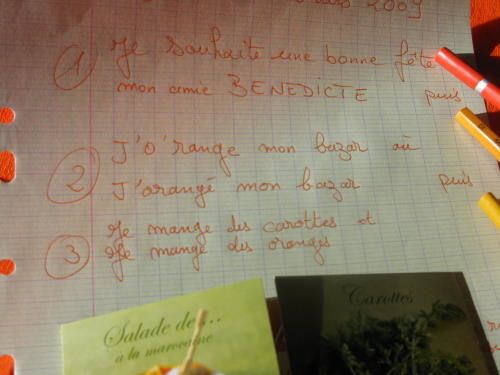 2009
1 Je souhaite une bonne fête
mon amie BENEDICTE puis
2 J'o'range mon bazar où
J'orangé mon bazar puis
3 Je mange des carottes et
Je mange des oranges
Salade de...
à la marocaine
Carottes